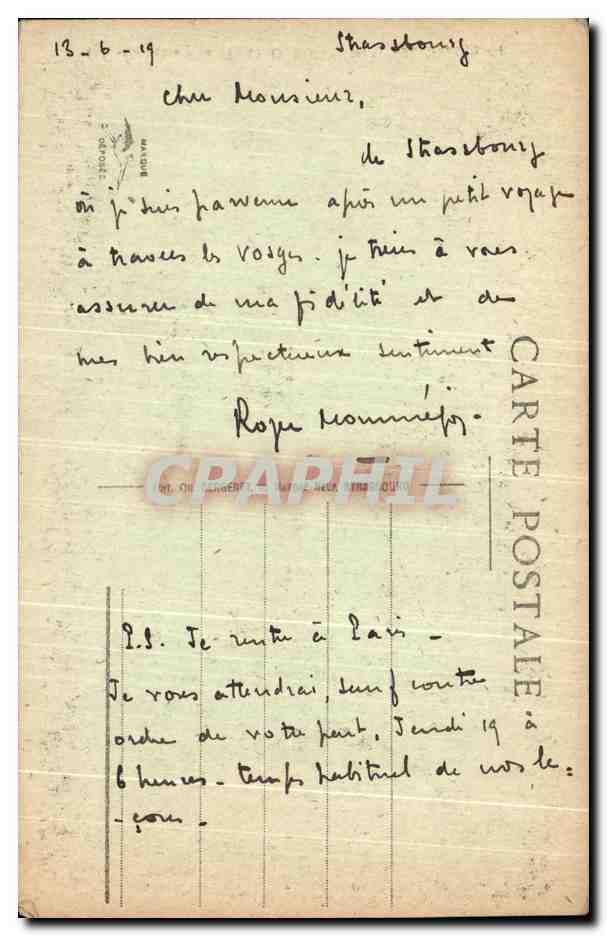 13-6-19 Strasbourg
cher Monsieur,
MARQUE
DÉPOSÉE
de Strasbourg
où je suis parvenu après un petit voyage
à travers les Vosges. je tiens à vous
assurer de ma fidélité et de
mes bien respectueux sentiment
Roger
CPARHIL
CH. BERGERET STRASBOURG
CARTE POSTALE
P.S. Je rentre à Paris -
Je vous attendrai, sauf contre
ordre de votre part, Jeudi 19 à
6 heures - temps habituel de nos le=
-çons -